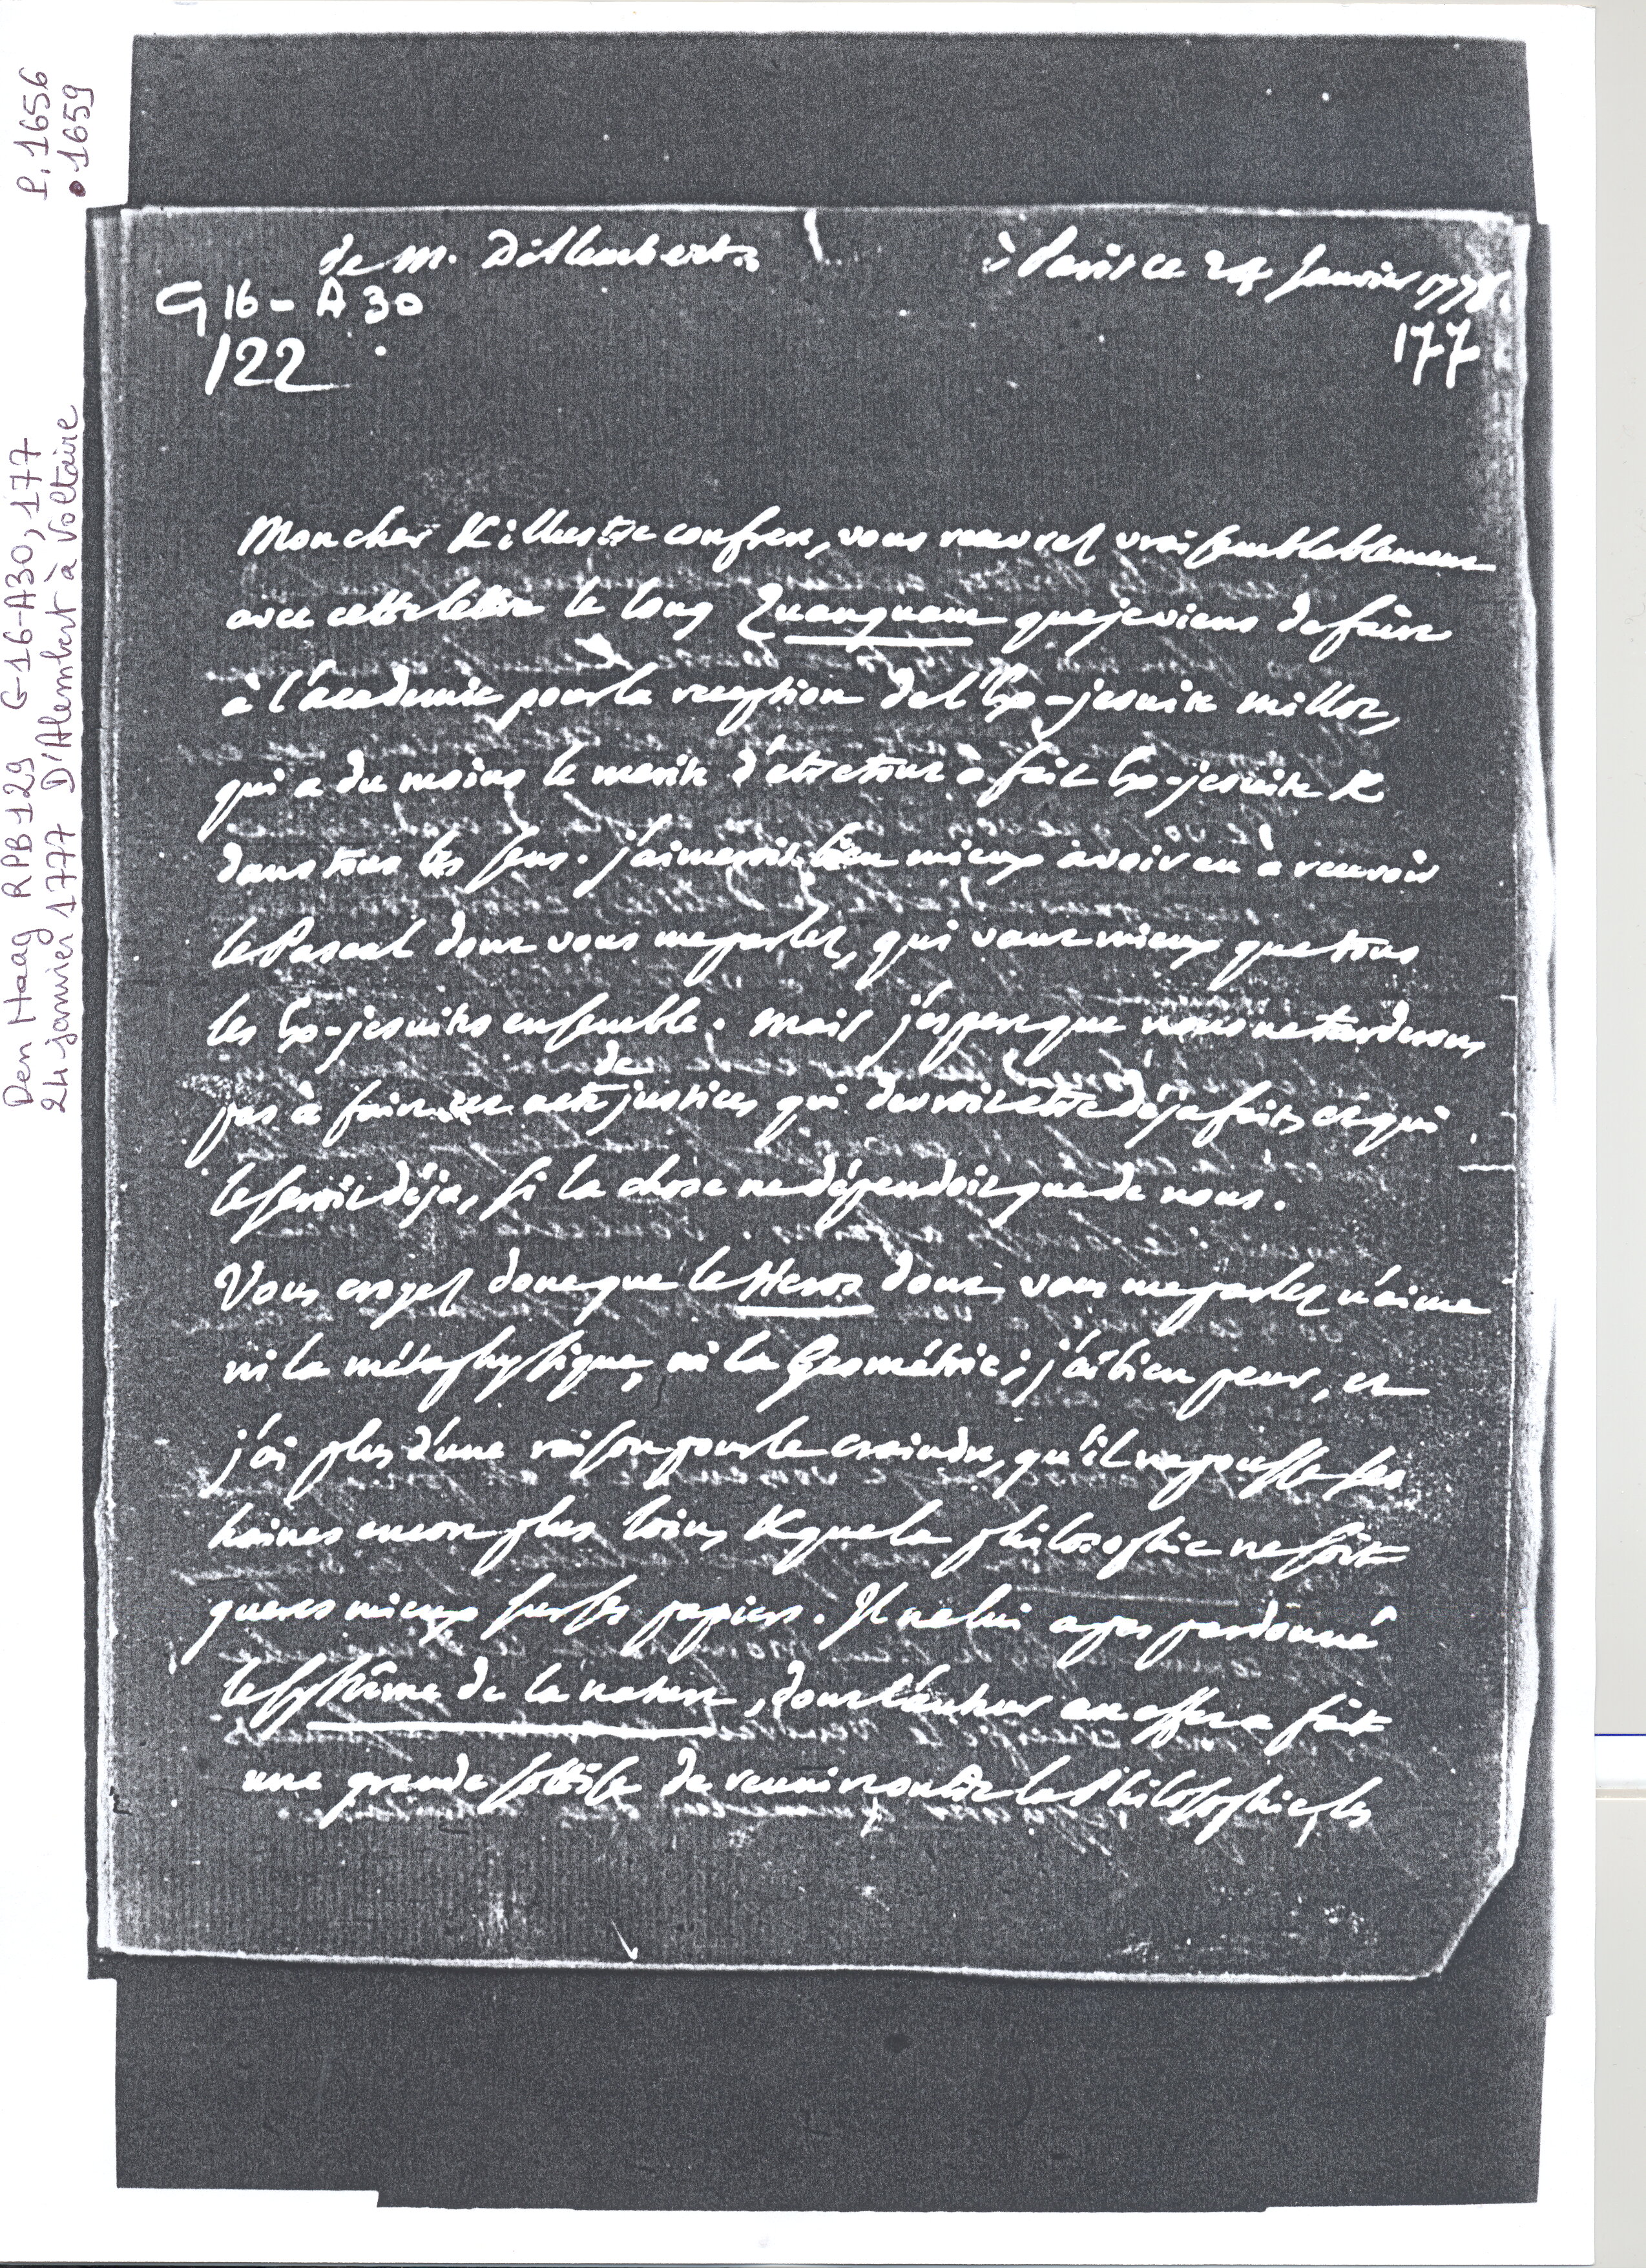 P. 1656
• 1659
Den Haag RPB129 G-16-A30, 177
24 janvier 1777 D'Alembert à Voltaire
de M. D'Alembert.
à Paris ce 24 Janvier 1778
G 16 - A 30
122
177
Mon cher & illustre confrere, vous recevrez vraisemblablement
avec cette lettre le long Quanquam que je viens de faire
à l'academie pour la reception de l'Ex-jesuite millot,
qui a du moins le merite d'être tout à fait Ex-jesuite &
dans tous les sens. j'aimerois bien mieux avoir eu à recevoir
le Pascal dont vous me parlez, qui vaut mieux que tous
les Ex-jesuites ensemble. mais j'espere que nous ne tarderons
pas à faire cet acte de justice, qui devroit être déja fait, et qui
le seroit déja, si la chose ne dépendoit que de nous.
Vous croyez donc que le Heros dont vous me parlez n'aime
ni la métaphysique, ni la Géométrie; j'ai bien peur, et
j'ai plus d'une raison pour le craindre, qu'il ne pousse ses
haines encore plus loin, & que la philosophie ne soit
gueres mieux sur ses papiers. Il ne lui a pas pardonné
le système de la nature, dont l'auteur en effet a fait
une grande sottise de reunir contre la Philosophie, les